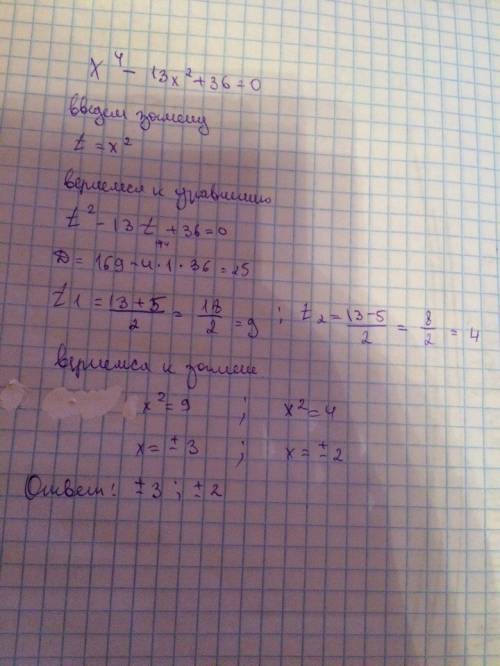 x⁴ - 13x² + 36 = 0
введем замену
t = x²
вернемся к уравнению
t² - 13t + 36 = 0
D = 169 - 4 · 1 · 36 = 25
t₁ = (13 + 5)/2 = 18/2 = 9 ; t₂ = (13 - 5)/2 = 8/2 = 4
вернемся к замене
x² = 9 ; x² = 4
x = ± 3 ; x = ± 2
Ответ: ± 3 ; ± 2